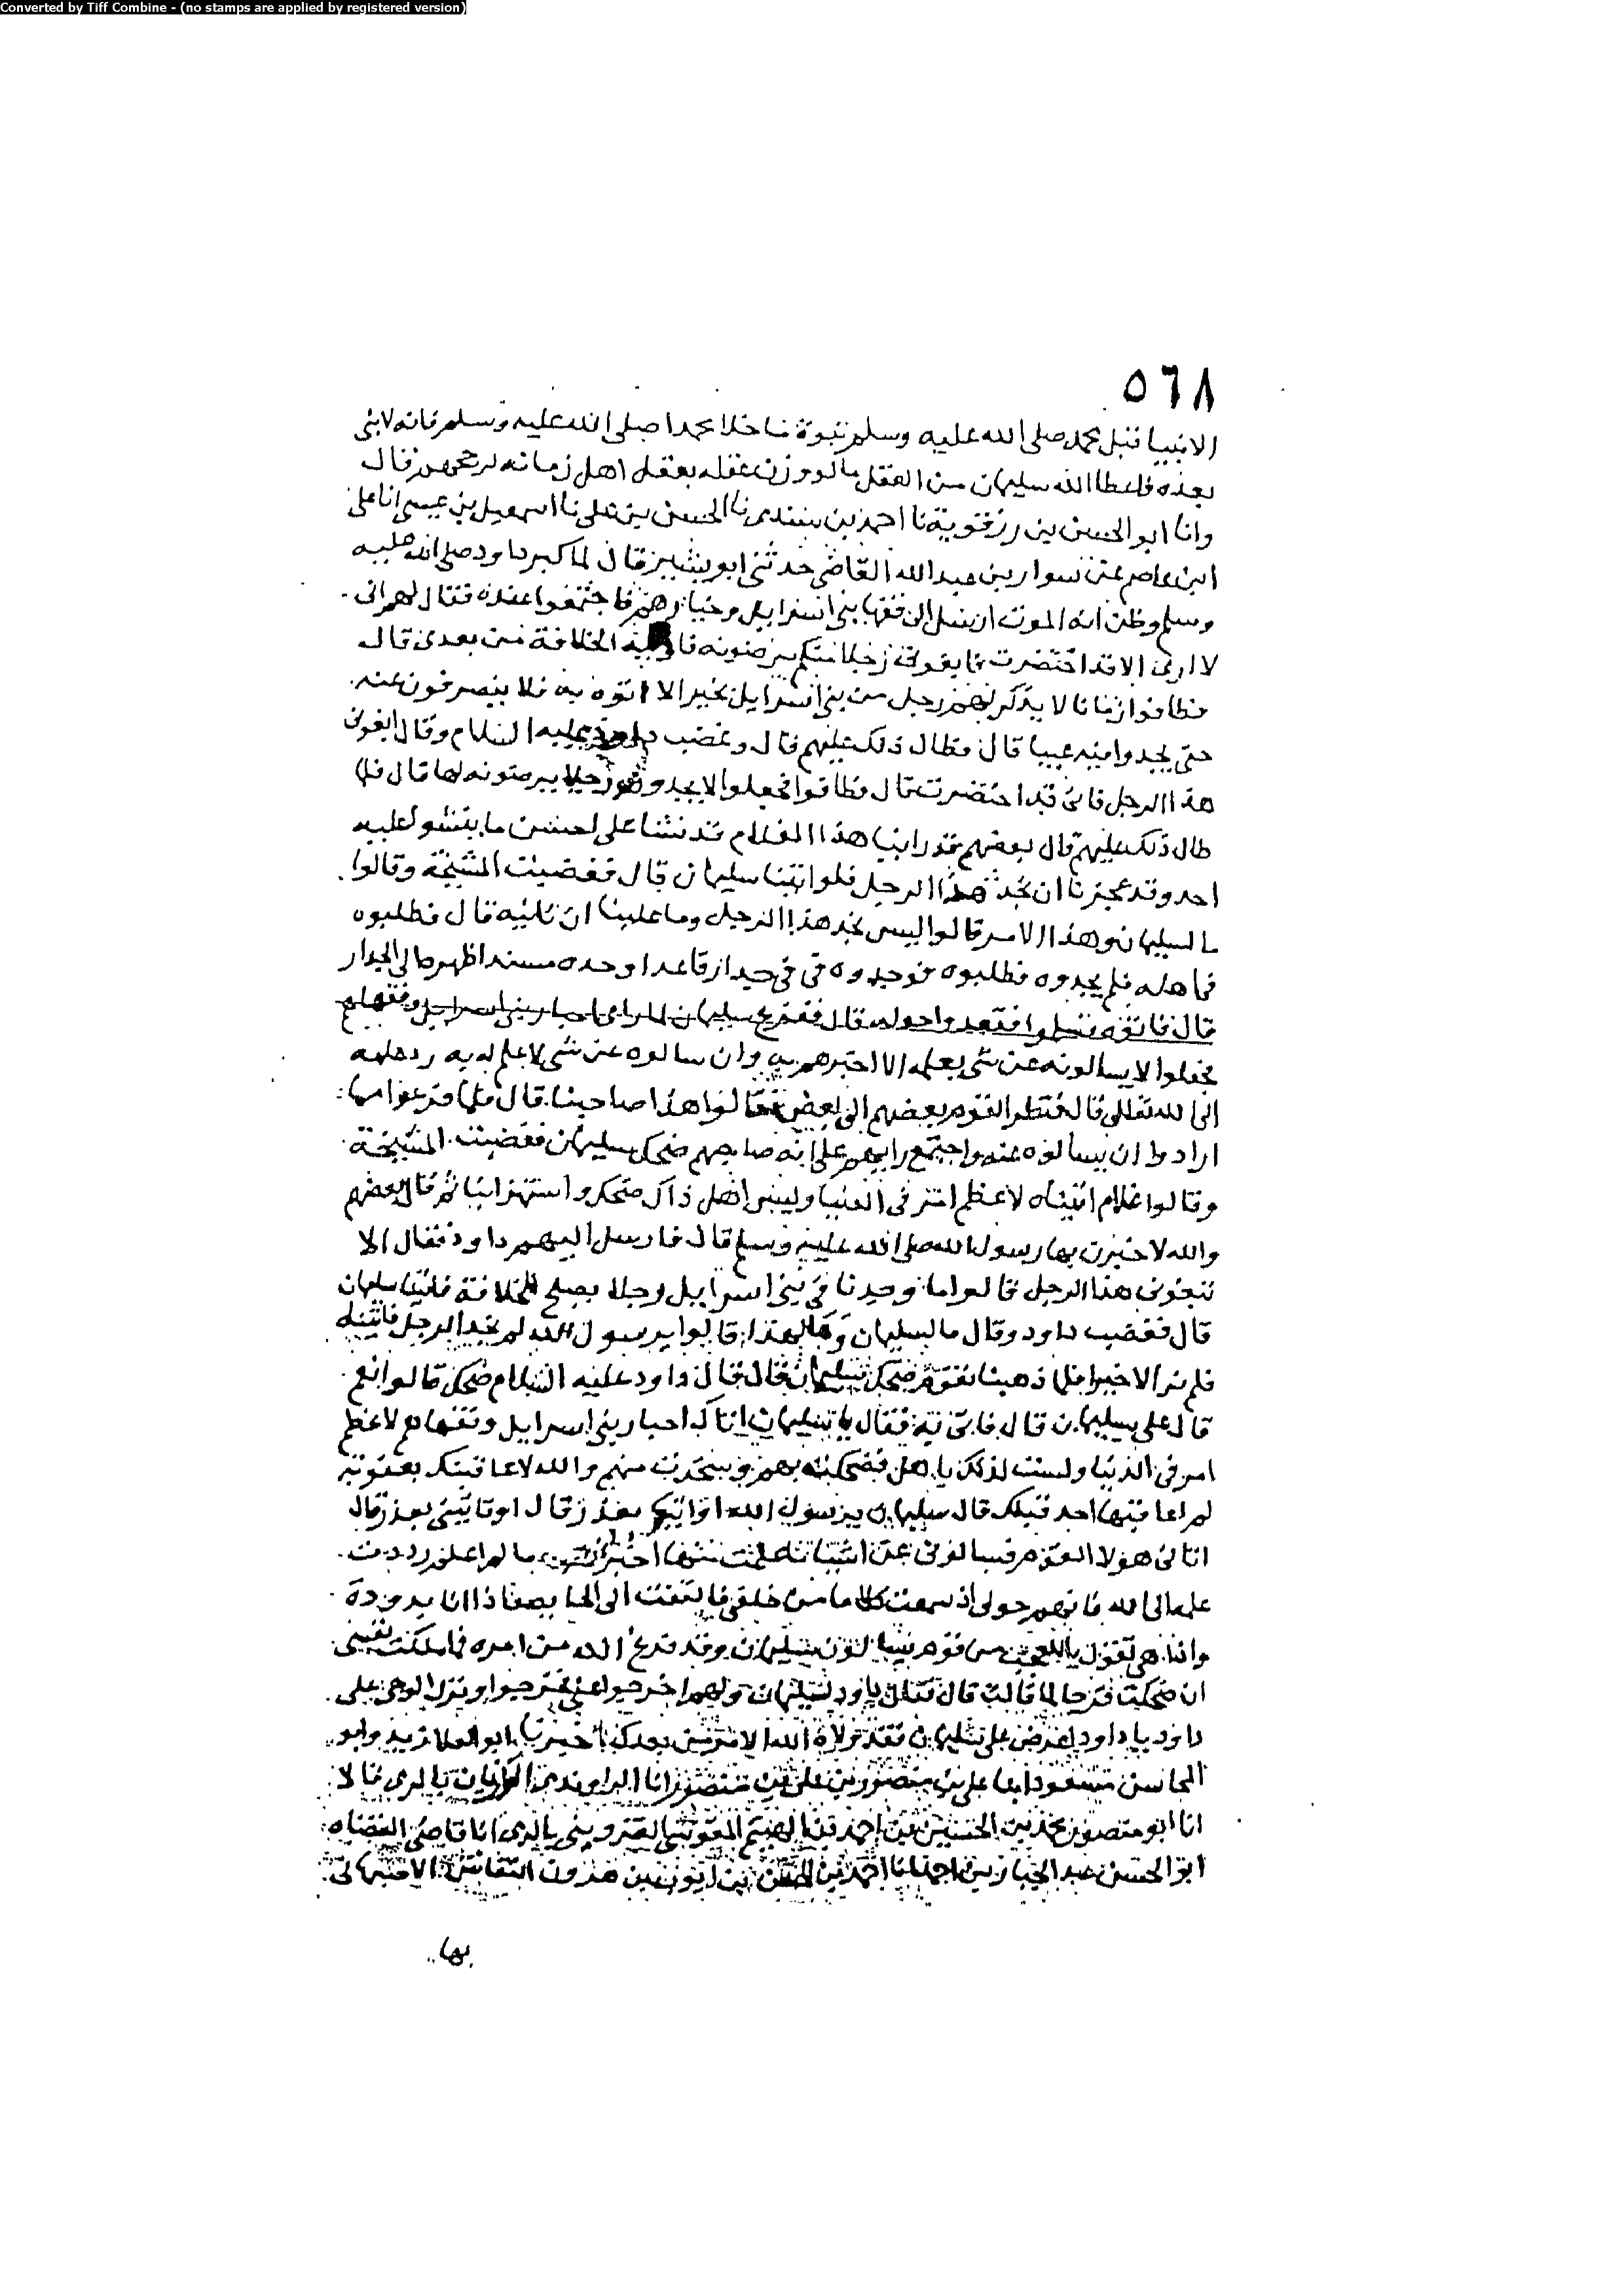 Converted by Tiff Combine - (no stamps are applied by registered version)
٥٦٨
الانبيا قبل محمد صلى الله عليه وسلم نبوة ما خلا محمدا صلى الله عليه وسلم فانه لا نبى
بعده فاعطا الله سليمان من العقل ما لو وزن عقله بعقل اهل زمانه لرجحهم قال
وانا ابو الحسن بن رزقوية نا احمد بن سندى نا الحسن بن على نا اسمعيل بن عيسى انا على
ابن عاصم عن سوار بن عبد الله القاضى حدثنى ابو بشير قال لما كبر داود صلى الله عليه
وسلم وظن انه الموت ارسل الى فقها بنى اسرايل وخيارهم فاجتمعوا عنده فقال لهم انى
لا ارى الا قد احتضرت فابغونى رجلا منكم ترضونه الخلافة من بعدى قال
فطافوا زمانا لا يذكر لهم رجل من بنى اسرايل بخير الا اتوه به فلا ينصرفون عنه
حتى يجدوا فيه عيبا قال فطال ذلك عليهم قال وغضب داود عليه السلام وقال ابغونى
هذا الرجل فانى قد احتضرت قال فطافوا فجعلوا لا يجدون رجلا يرضونه لها قال فلما
طال ذلك عليهم قال بعضهم قد راينا هذا الغلام قد نشا على احسن ما ينشو عليه
احد وقد عجزنا ان نجد هذا الرجل فلو اتينا سليمان قال فغضبت المشيخة وقالوا
ما لسليمان وهذا الامر قالوا ليس نجد هذا الرجل وما علينا ان ناتيه قال فطلبوه
فى اهله فلم يجدوه فطلبوه فوجدوه فى قاعدا وحده مسندا ظهره الى الجدار
قال فاتوه فسلموا فقعدوا حوله قال ففرح سليمان لما راى احبار بنى اسرايل وفقهاهم
فجعلوا لا يسالونه عن شى يعلمه الا اخبرهم به وان سالوه عن شى لا علم له به رد علمه
الى الله تعالى قال فنظر القوم بعضهم الى بعض فقالوا هذا صاحبنا قال فلما فرغوا مما
ارادوا ان يسالوه عنه واجتمع رايهم على انه صاحبهم ضحك سليمان فغضبت المشيخة
وقالوا غلام اتيناه لاعظم امر فى الدنيا وليس اهل ذاك ضحك واستهزا بنا ثم قال بعضهم
والله لاخبرن بها رسول الله صلى الله عليه وسلم قال فارسل اليهم داود فقال الا
تبغونى هذا الرجل قالوا ما وجدنا فى بنى اسرايل رجلا يصلح للخلافة فاتينا سليمان
قال فغضب داود وقال ما لسليمان وما لهذا قالوا يرسول الله لم نجد الرجل فاتيناه
فلم نر الا خيرا فلما ذهبنا نقوم ضحك سليمان قال فقال داود عليه السلام ضحك قالوا نعم
قال على بسليمان قال فاتى به فقال يا سليمان اتاك احبار بنى اسرايل وفقهاهم لاعظم
امر فى الدنيا ولست لذلك باهل فضحكت بهم وسخرت منهم والله لاعاقبنك بعقوبة
لم اعاقبها احد قبلك قال سليمان يرسول الله اواتيك بعذر قال اوتاتينى بعذر قال
اتانى هولا القوم فسالونى عن اشيا ما علمت منها اخبرتهم وما لم اعلم رددت
علمه الى الله فانهم حولى اذ سمعت كلاما من خلفى فالتفت الى الحايط فاذا انا بدودة
واذا هى تقول يا للعجب من قوم يسالون سليمان وقد فرغ الله من امره فما ملكت نفسى
ان ضحكت فرحا لما قالت قال فقال داود لسليمان ولهم اخرجوا عنى فخرجوا ونزل الوحى على
داود يا داود اعرض على سليمان فقد ولاه الله الامر من بعدك اخبرنا ابو العلا زيد وابو
المحاسن مسعود ابنا على بن منصور بن على بن منصور انا الراوندى بالرى قالا
انا ابو منصور محمد بن الحسين بن احمد بن الهيثم المقومى القزوينى بالرى انا قاضى القضاه
ابو الحسن عبد الجبار بن احمد نا احمد بن الحسن بن ايوب بن هرون النقاش الاصبهانى
بها